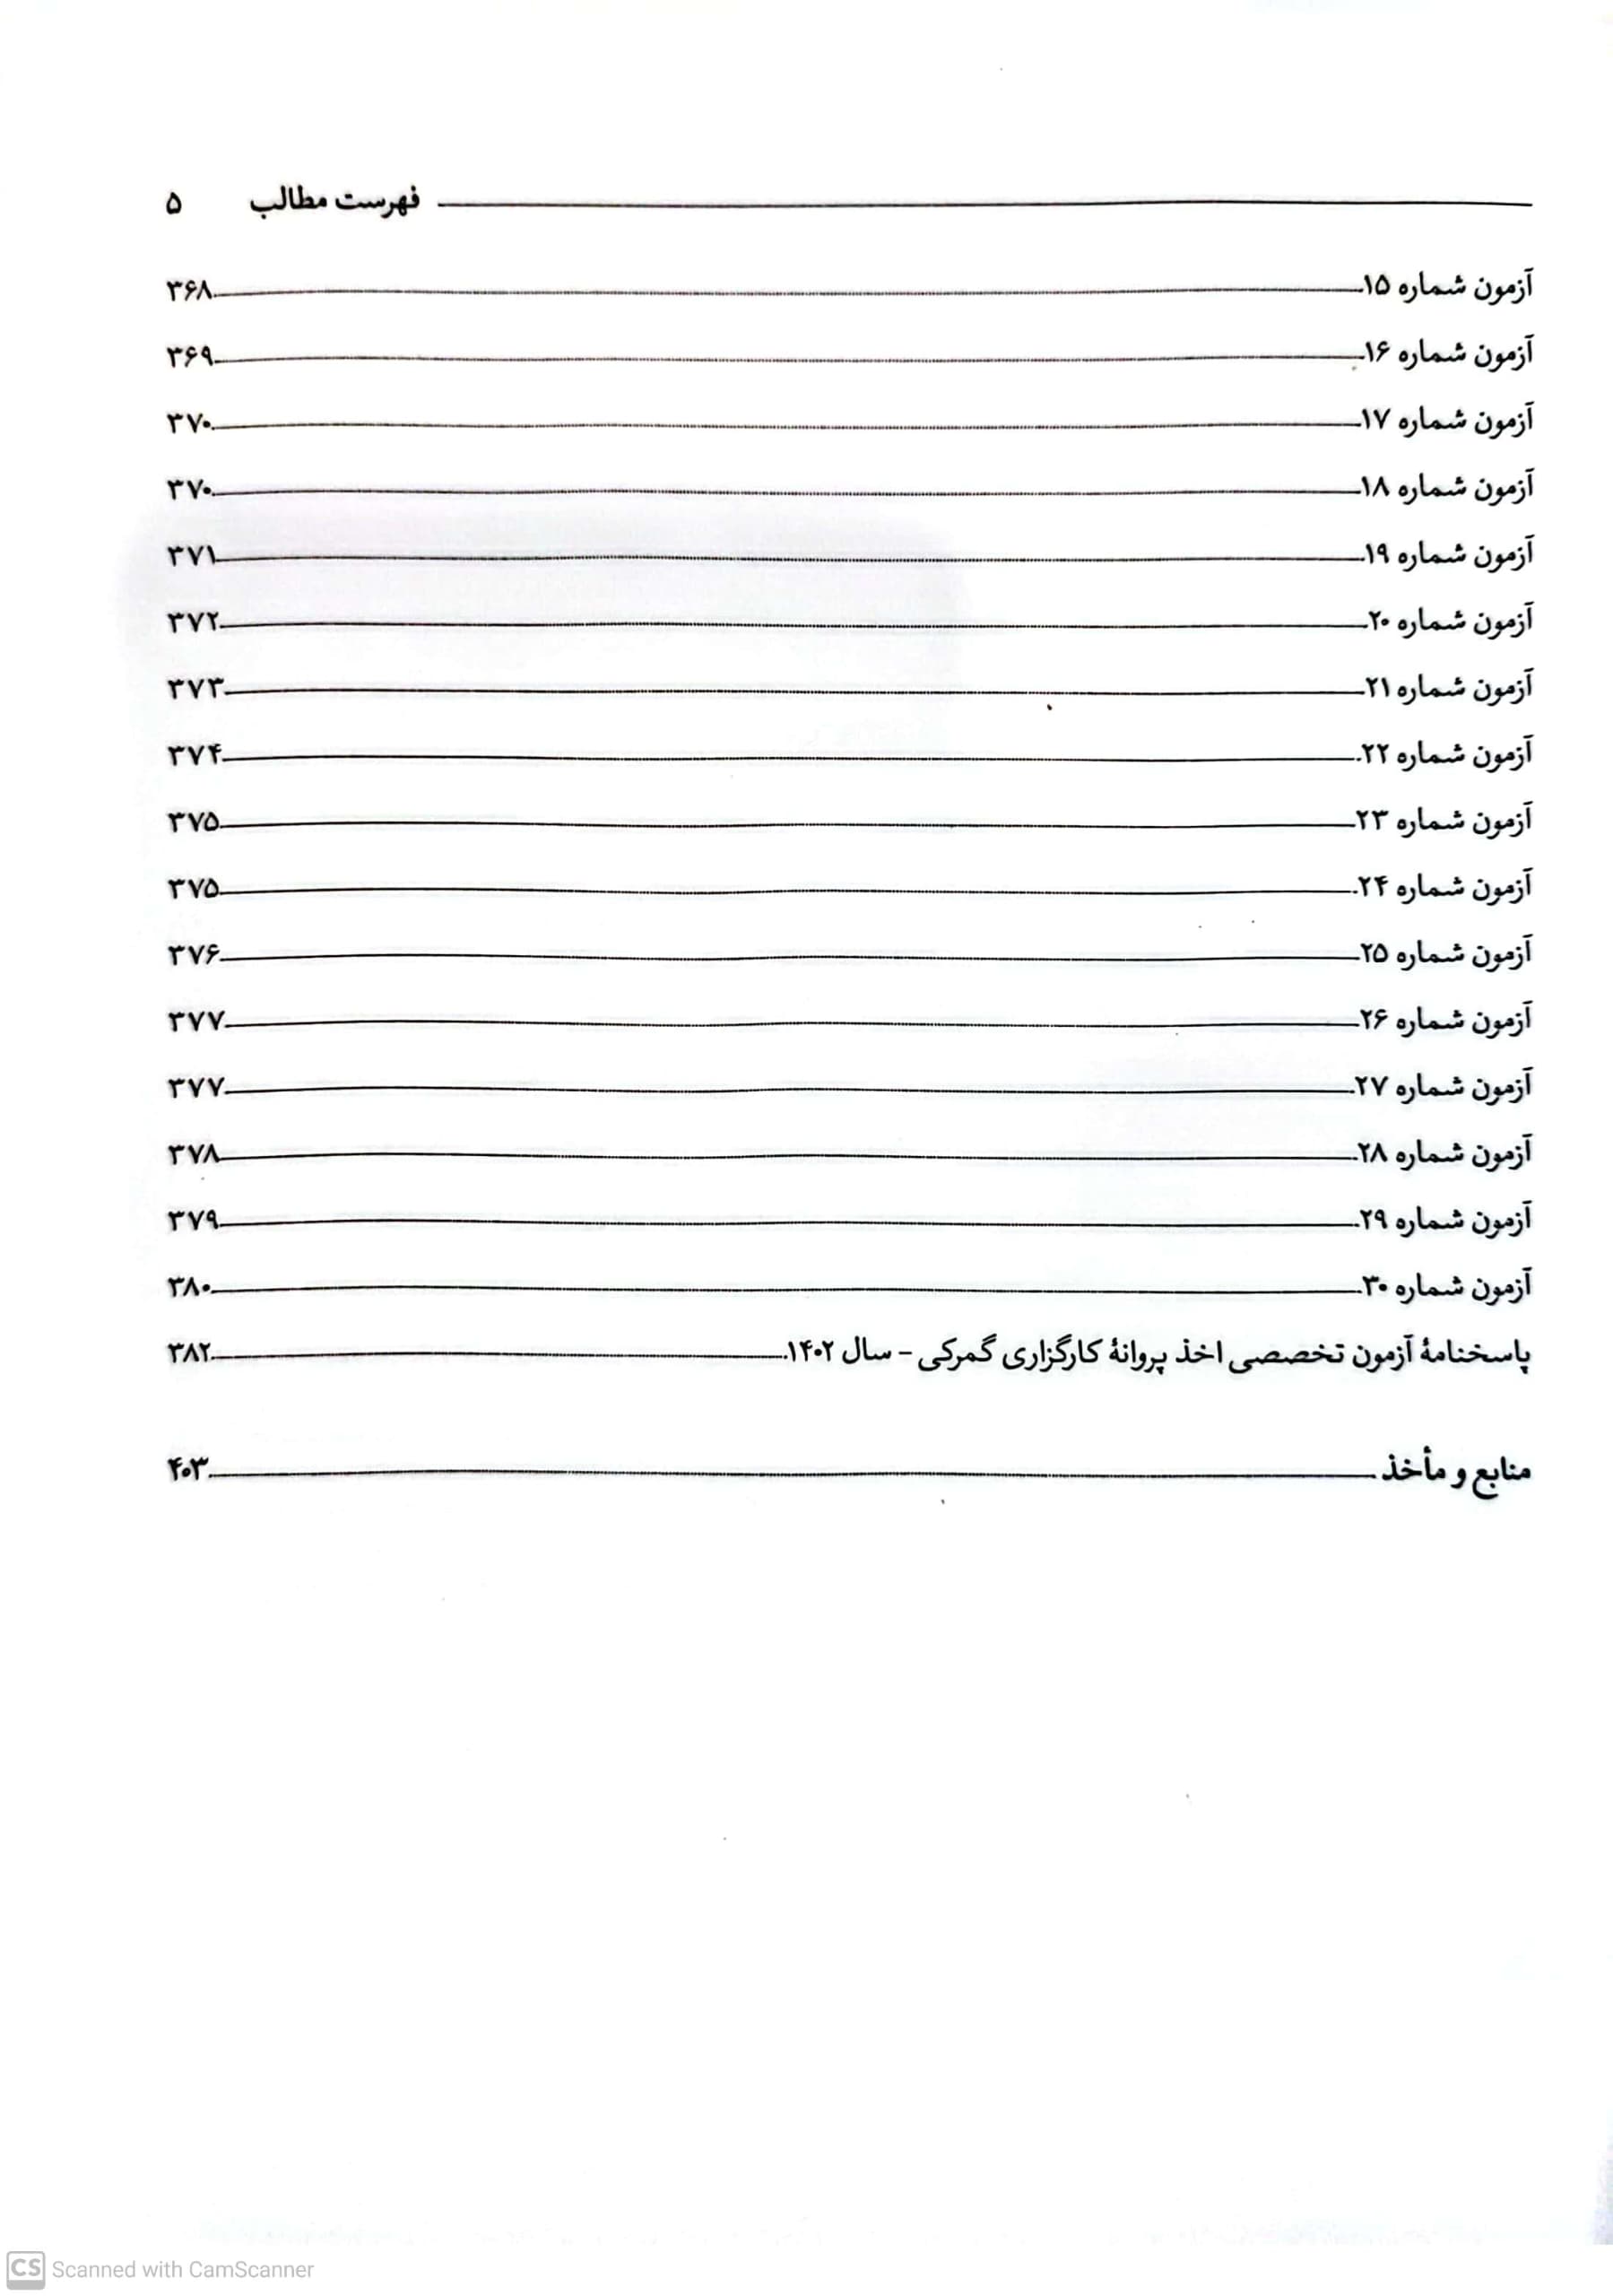 فهرست مطالب ۵
آزمون شماره ۱۵ ۳۶۸
آزمون شماره ۱۶ ۳۶۹
آزمون شماره ۱۷ ۳۷۰
آزمون شماره ۱۸ ۳۷۰
آزمون شماره ۱۹ ۳۷۱
آزمون شماره ۲۰ ۳۷۲
آزمون شماره ۲۱ ۳۷۳
آزمون شماره ۲۲ ۳۷۴
آزمون شماره ۲۳ ۳۷۵
آزمون شماره ۲۴ ۳۷۵
آزمون شماره ۲۵ ۳۷۶
آزمون شماره ۲۶ ۳۷۷
آزمون شماره ۲۷ ۳۷۷
آزمون شماره ۲۸ ۳۷۸
آزمون شماره ۲۹ ۳۷۹
آزمون شماره ۳۰ ۳۸۰
پاسخنامهٔ آزمون تخصصی اخذ پروانهٔ کارگزاری گمرکی - سال ۱۴۰۲ ۳۸۲
منابع و مأخذ ۴۰۳
CS Scanned with CamScanner